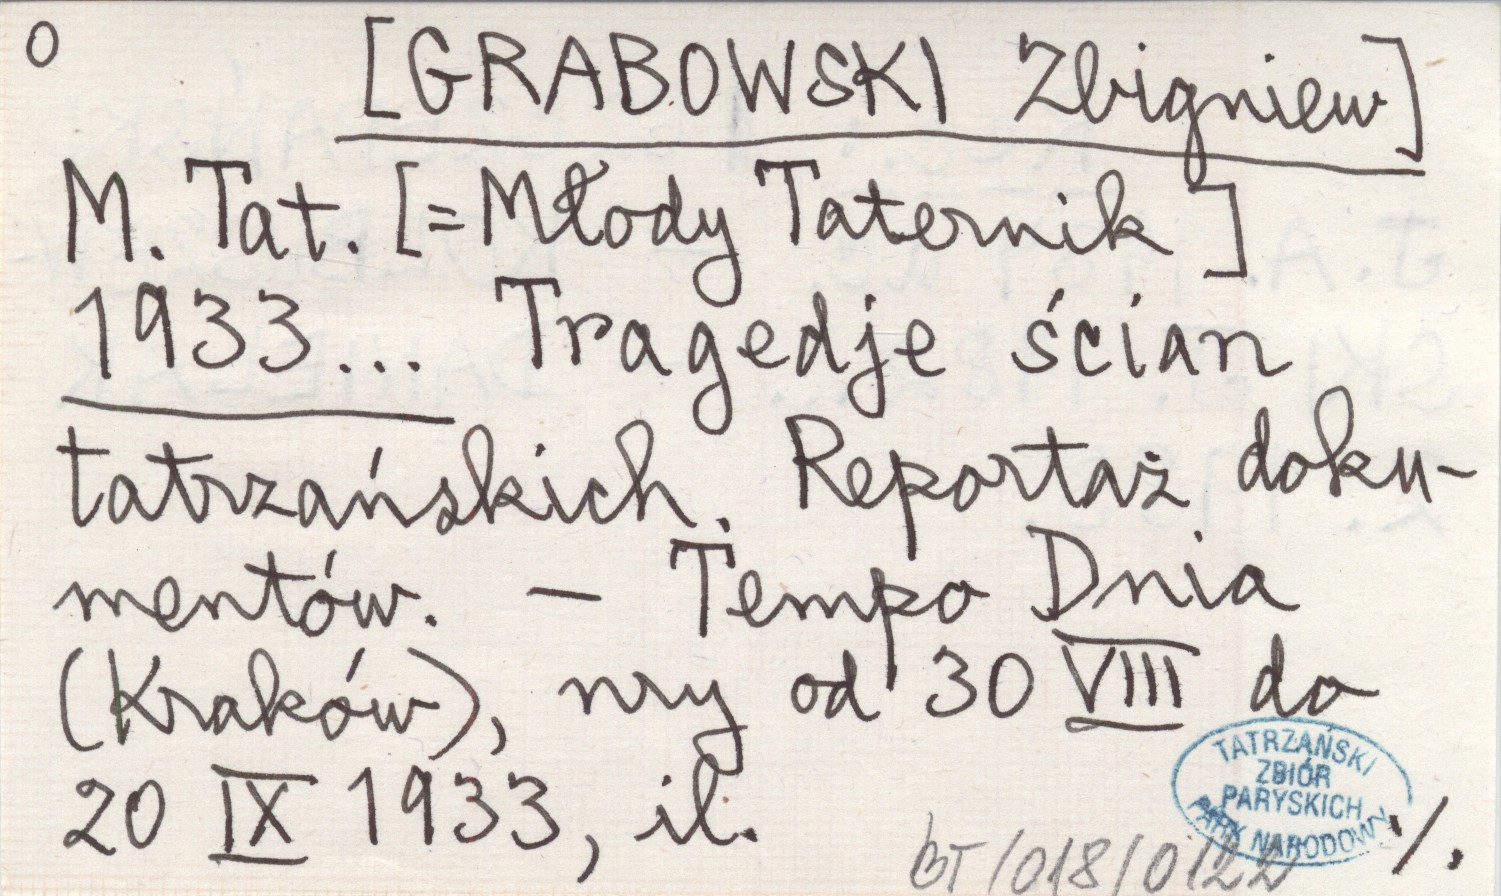 O
[GRABOWSKI Zbigniew]
M. Tat. [=Młody Taternik]
1933... Tragedje ścian
tatrzańskich. Reportaż doku-
mentów. – Tempo Dnia
(Kraków), nry od 30 VIII do
20 IX 1933, il.
TATRZAŃSKI
ZBIÓR
PARYSKICH
PARK NARODOWY
·/.
BT/018/0122